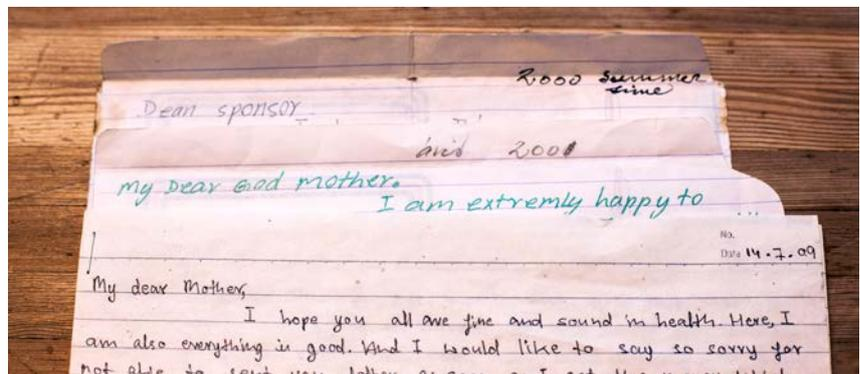 2000 summer
time
Dear sponsor
2001
My Dear God mother.
I am extremly happy to
No.
Date 14.7.09
My dear Mother,
I hope you all are fine and sound in health. Here, I
am also everything is good. And I would like to say so sorry for
not able to sent you letter as soon as I got the